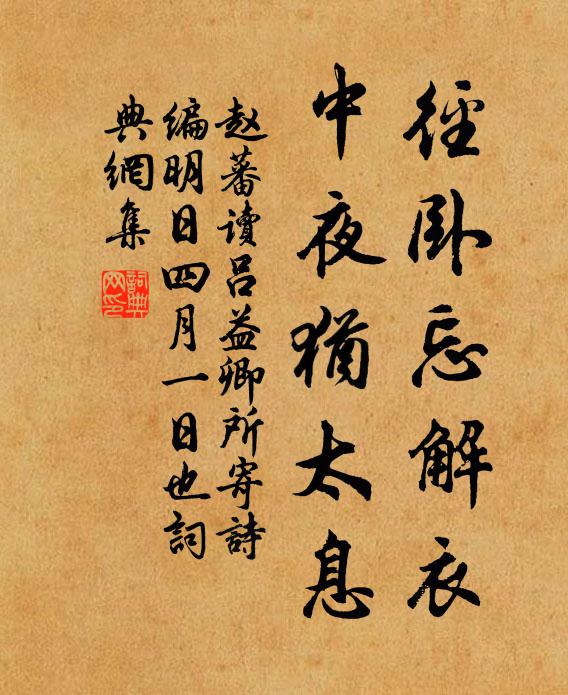 徑卧忘解衣
中夜猶太息
赵蕃讀呂益卿所寄詩
編明日四月一日也詞
典網集
詞典
网印